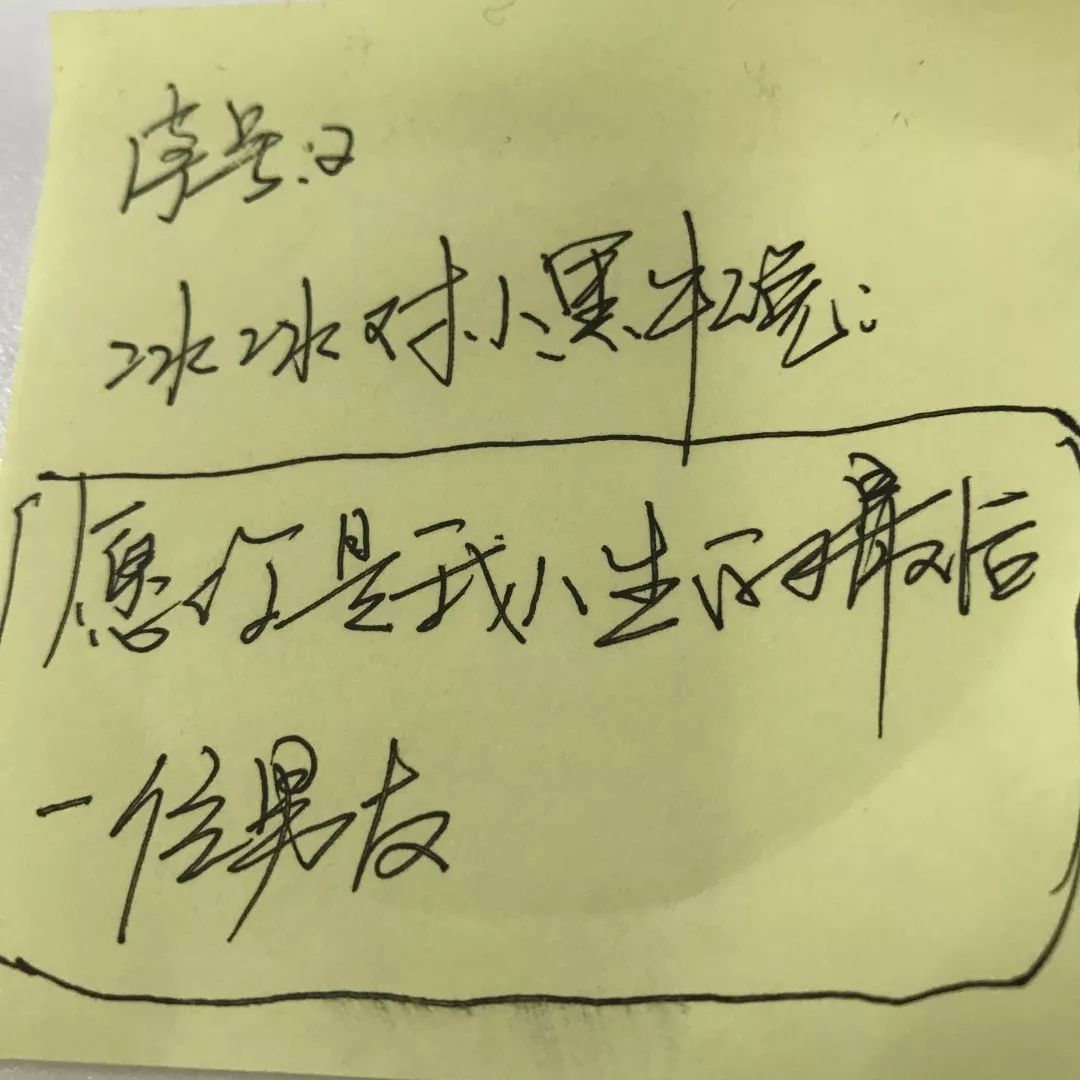 序号:2
冰冰对小黑牛说:
愿你是我人生的最后
一位男友